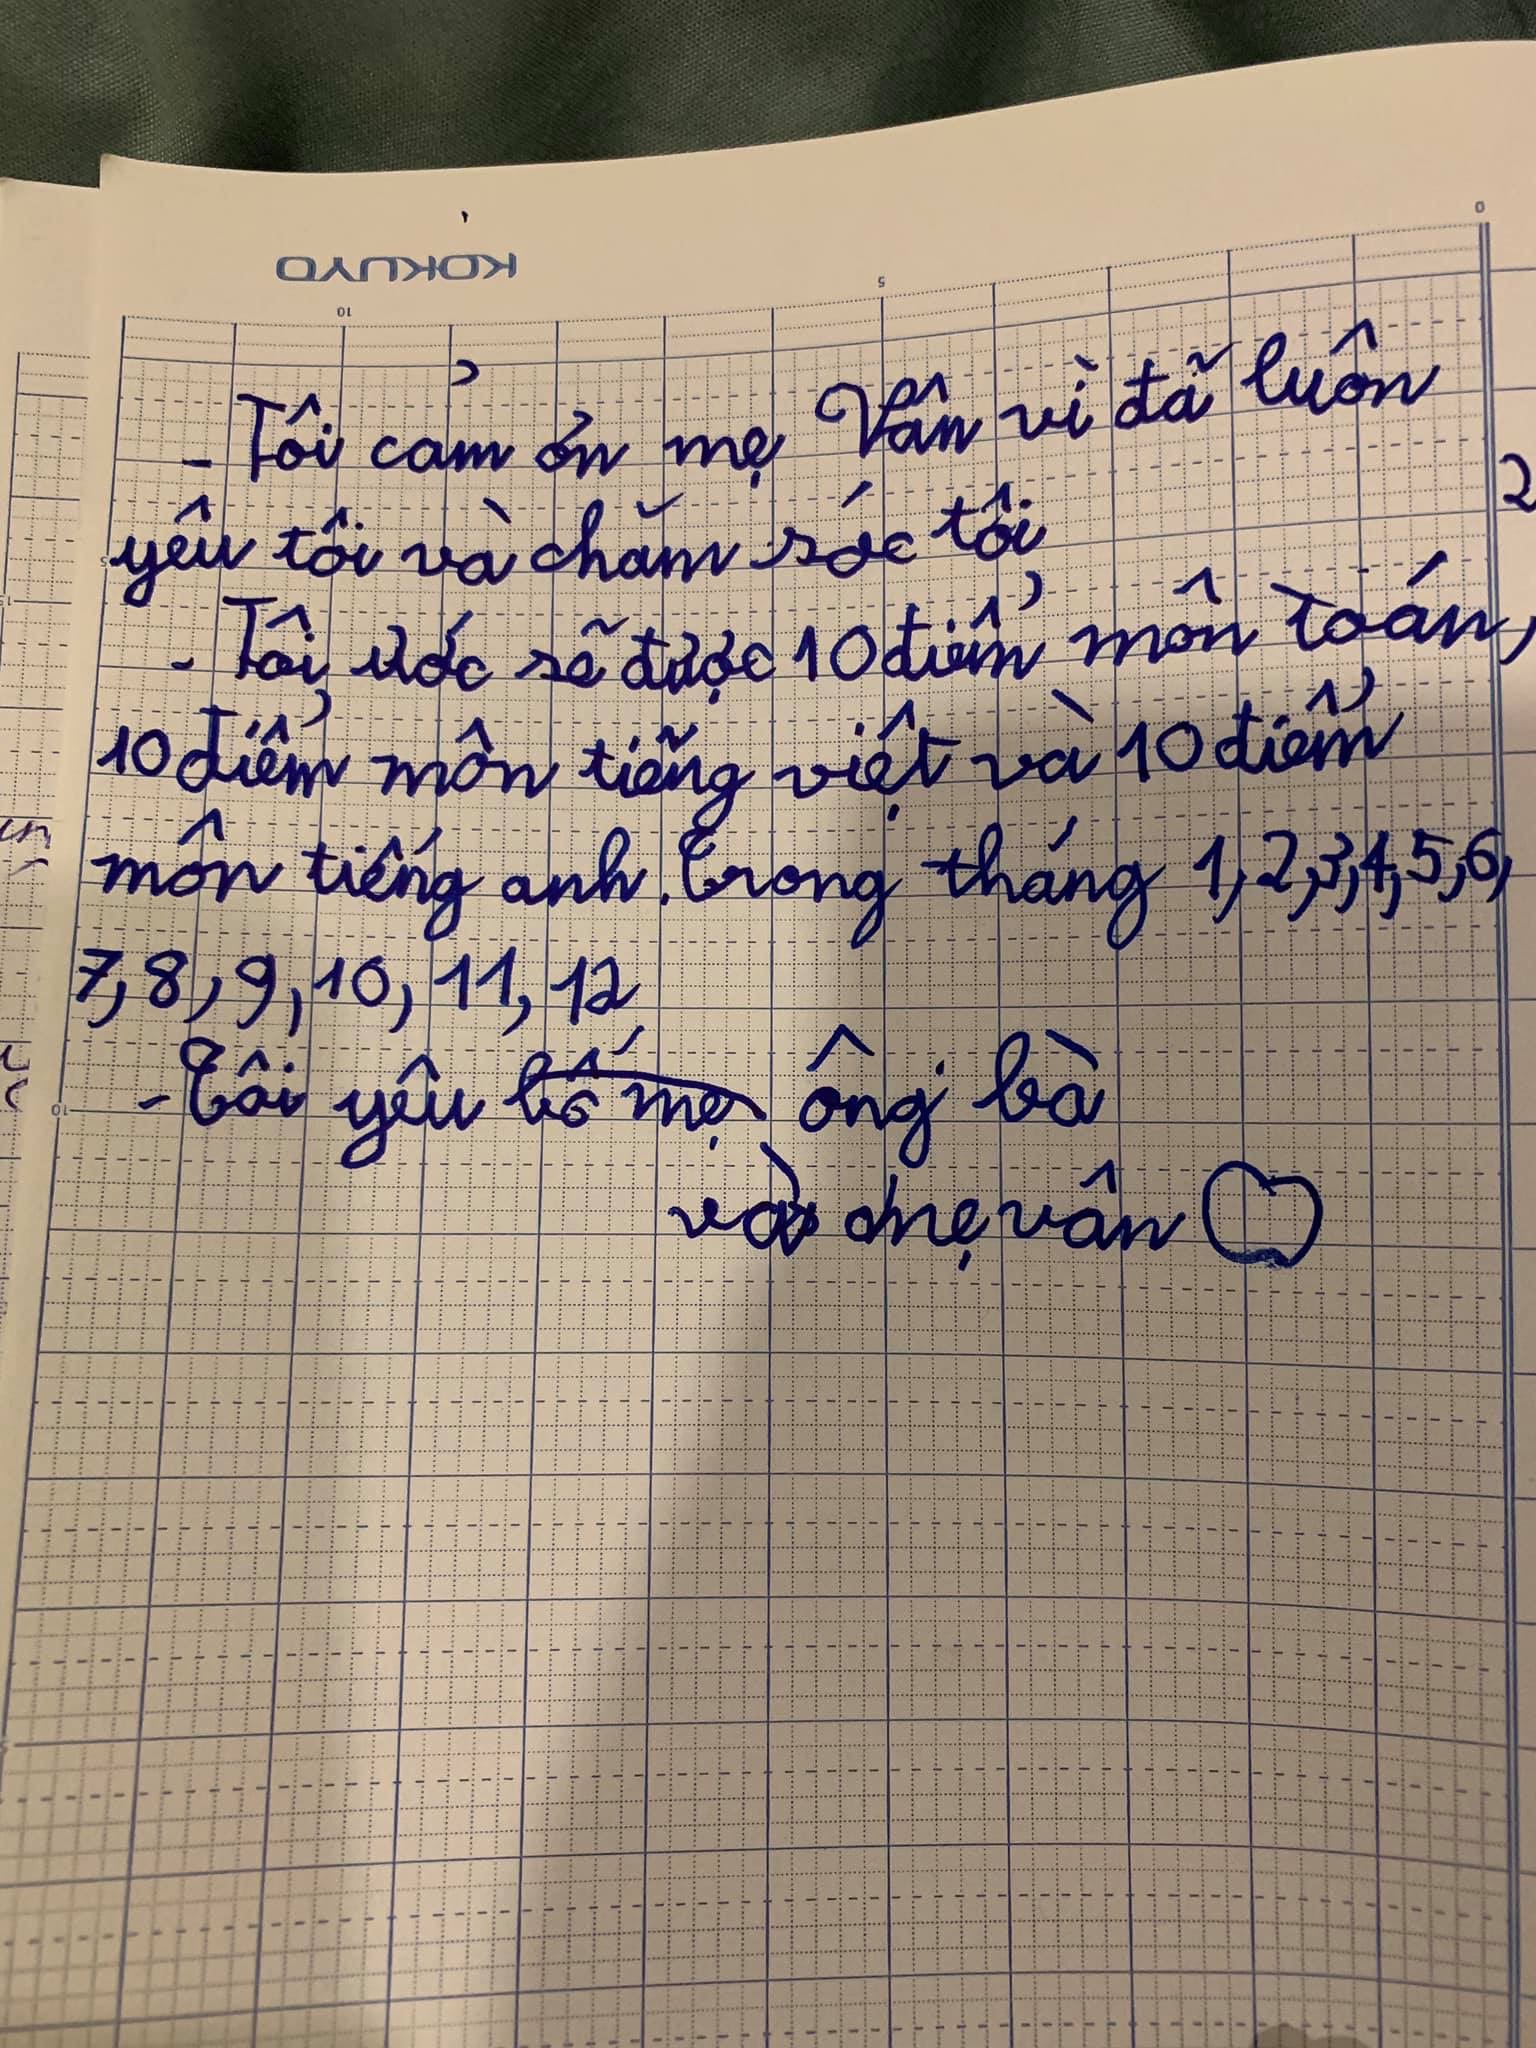 KOKUYO
10
5
0
- Tôi cảm ơn mẹ Vân vì đã luôn
yêu tôi và chăm sóc tôi
2
- Tôi ước sẽ được 10 điểm môn toán,
10 điểm môn tiếng việt và 10 điểm
môn tiếng anh. Trong tháng 1, 2, 3, 4, 5, 6,
7, 8, 9, 10, 11, 12
- Tôi yêu bố mẹ ông bà
và mẹ vân
5
10